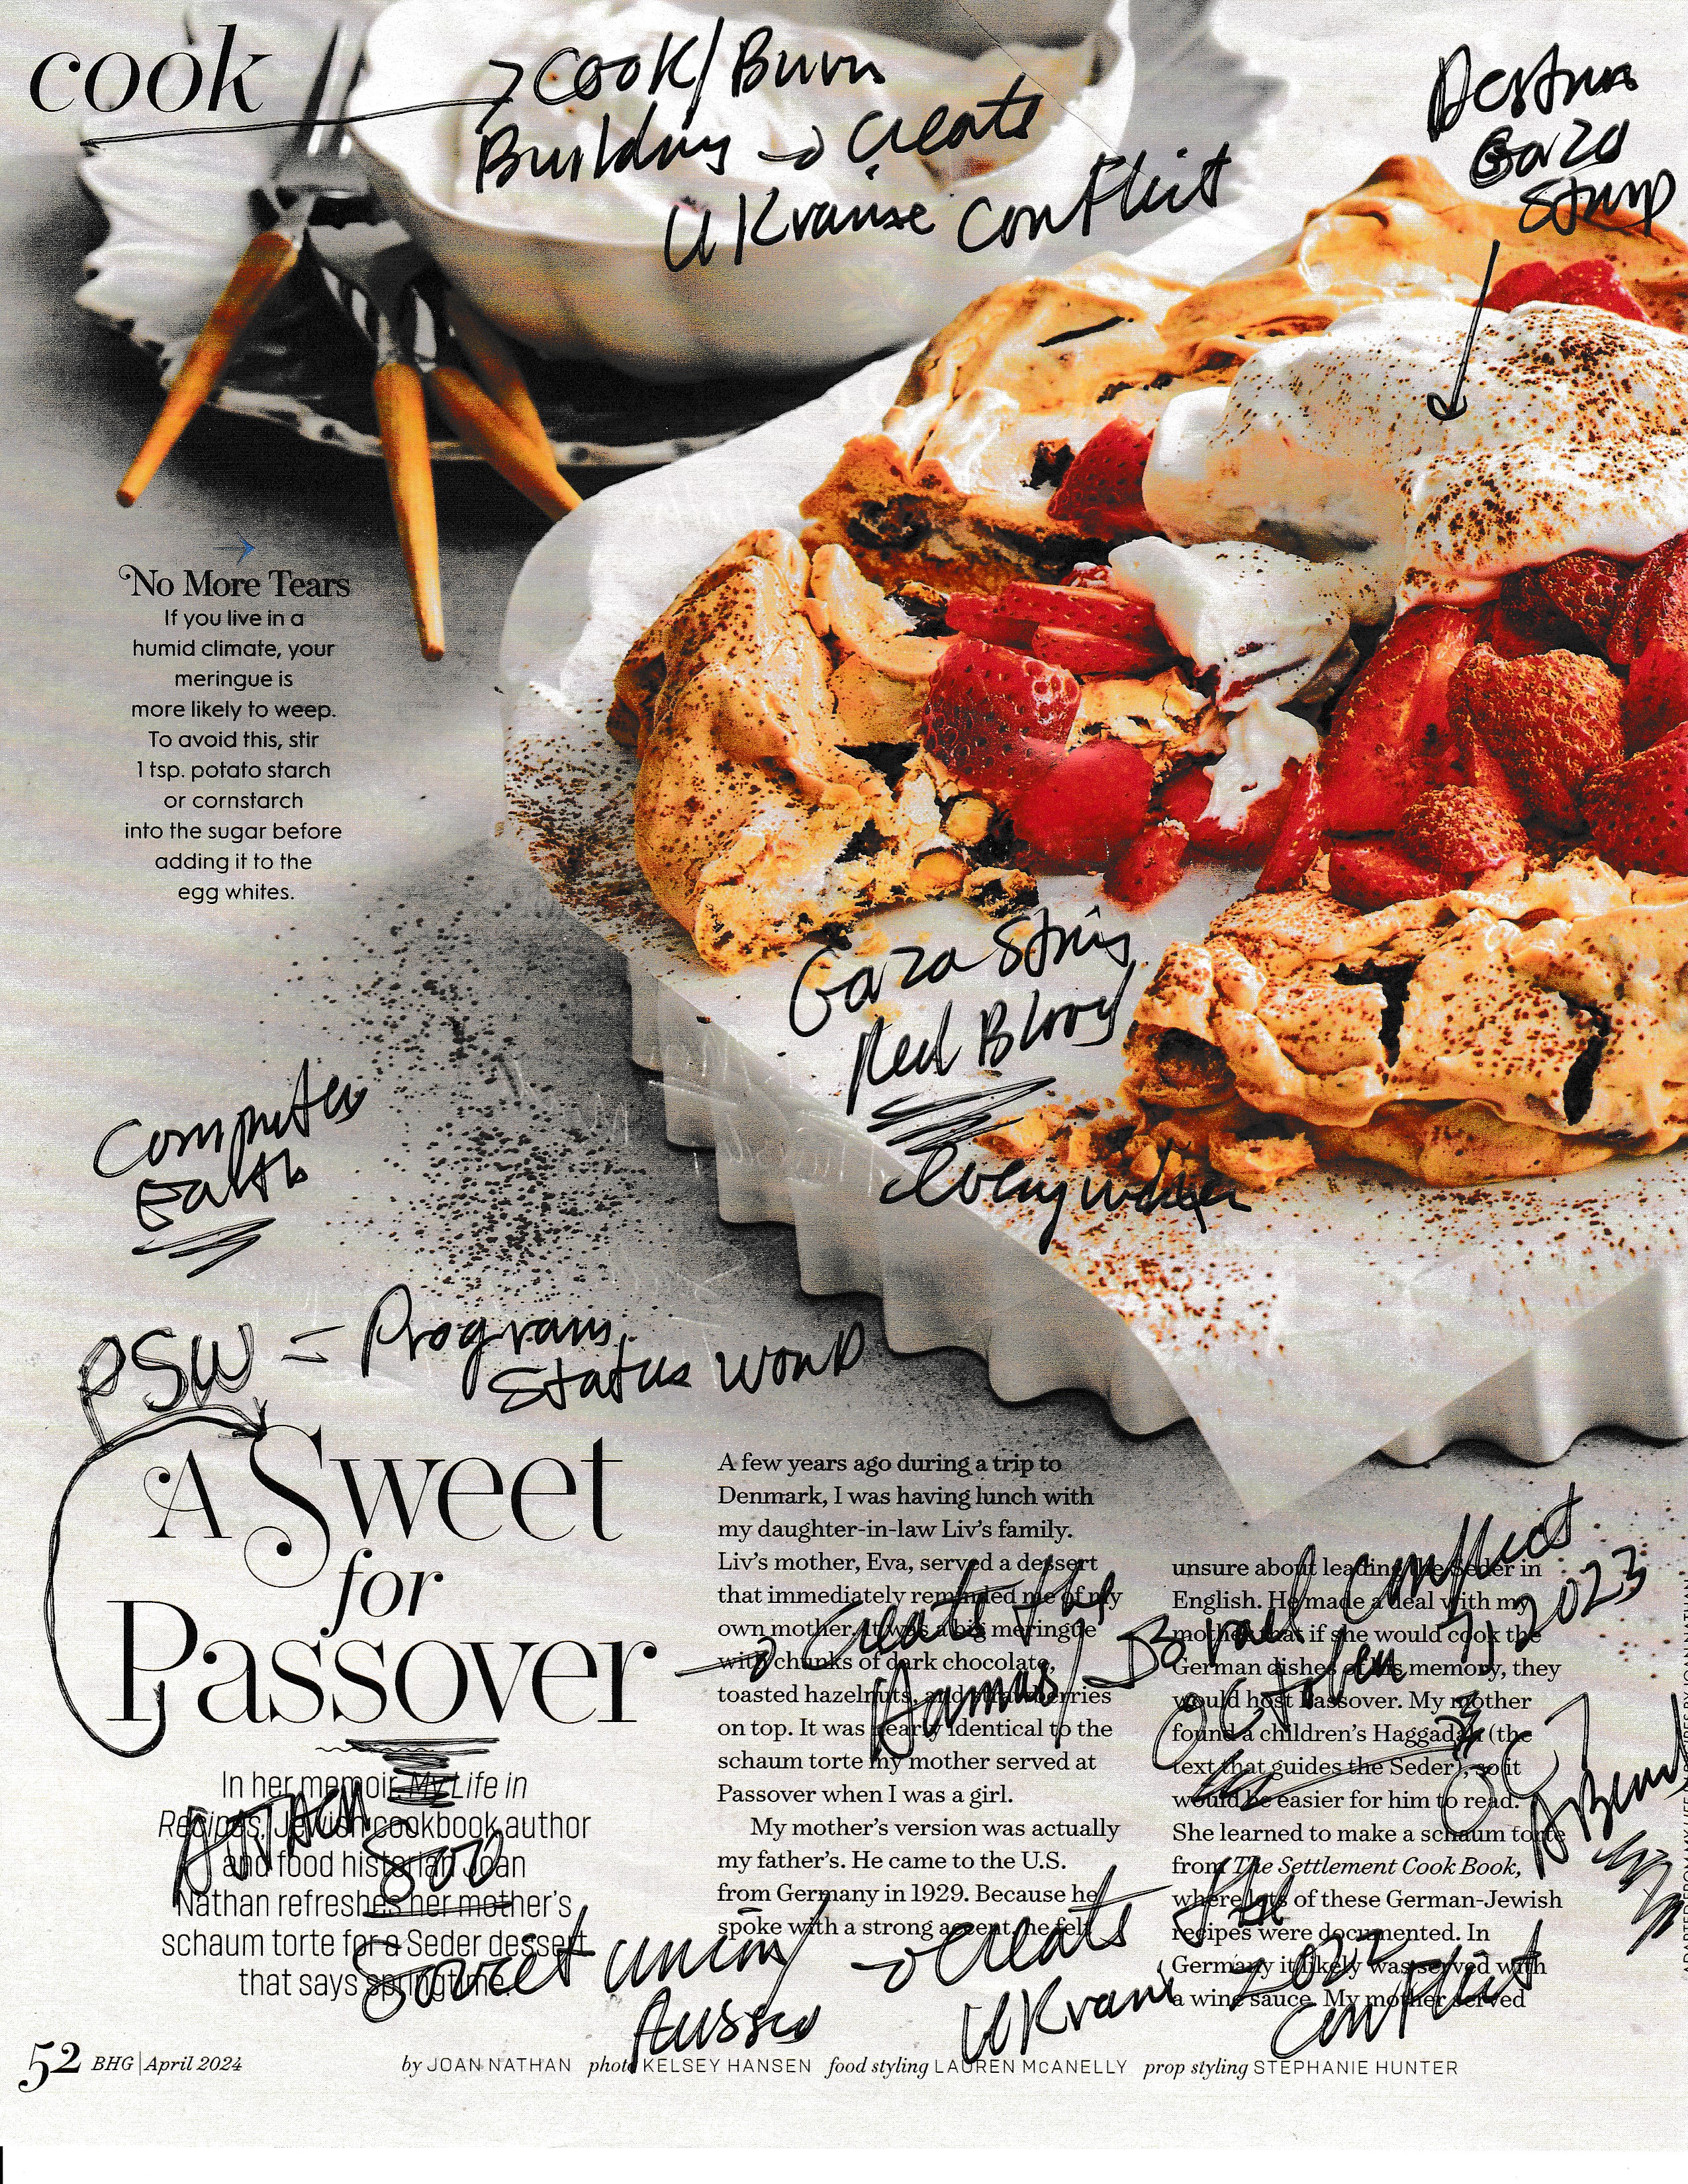 cook
→ Cook/Burn
Building → Create
UKraine Conflict
Gaza
No More Tears
If you live in a
humid climate, your
meringue is
more likely to weep.
To avoid this, stir
1 tsp. potato starch
or cornstarch
into the sugar before
adding it to the
egg whites.
Gaza
Red Blood
everywhere
Computer
Earth
PSW = Program
Status Word
A Sweet
for
Passover
In her memoir, My Life in
Recipes, Jewish cookbook author
and food historian Joan
Nathan refreshes her mother's
schaum torte for a Seder dessert
that says springtime.
A few years ago during a trip to
Denmark, I was having lunch with
my daughter-in-law Liv's family.
Liv's mother, Eva, served a dessert
that immediately reminded me of my
own mother. It was a big meringue
with chunks of dark chocolate,
toasted hazelnuts, and strawberries
on top. It was nearly identical to the
schaum torte my mother served at
Passover when I was a girl.
My mother's version was actually
my father's. He came to the U.S.
from Germany in 1929. Because he
spoke with a strong accent, he felt
unsure about leading the Seder in
English. He made a deal with my
mother that if she would cook the
German dishes of his memory, they
would host Passover. My mother
found a children's Haggadah (the
text that guides the Seder), so it
would be easier for him to read.
She learned to make a schaum torte
from The Settlement Cook Book,
where lots of these German-Jewish
recipes were documented. In
Germany it likely was served with
a wine sauce. My mother served
→ Create the
Hamas/Israel Conflict
October 7, 2023
Soviet Union/
Russia
→ Create the
UKraine 2022
Conflict
52 BHG | April 2024
by JOAN NATHAN photo KELSEY HANSEN food styling LAUREN McANELLY prop styling STEPHANIE HUNTER